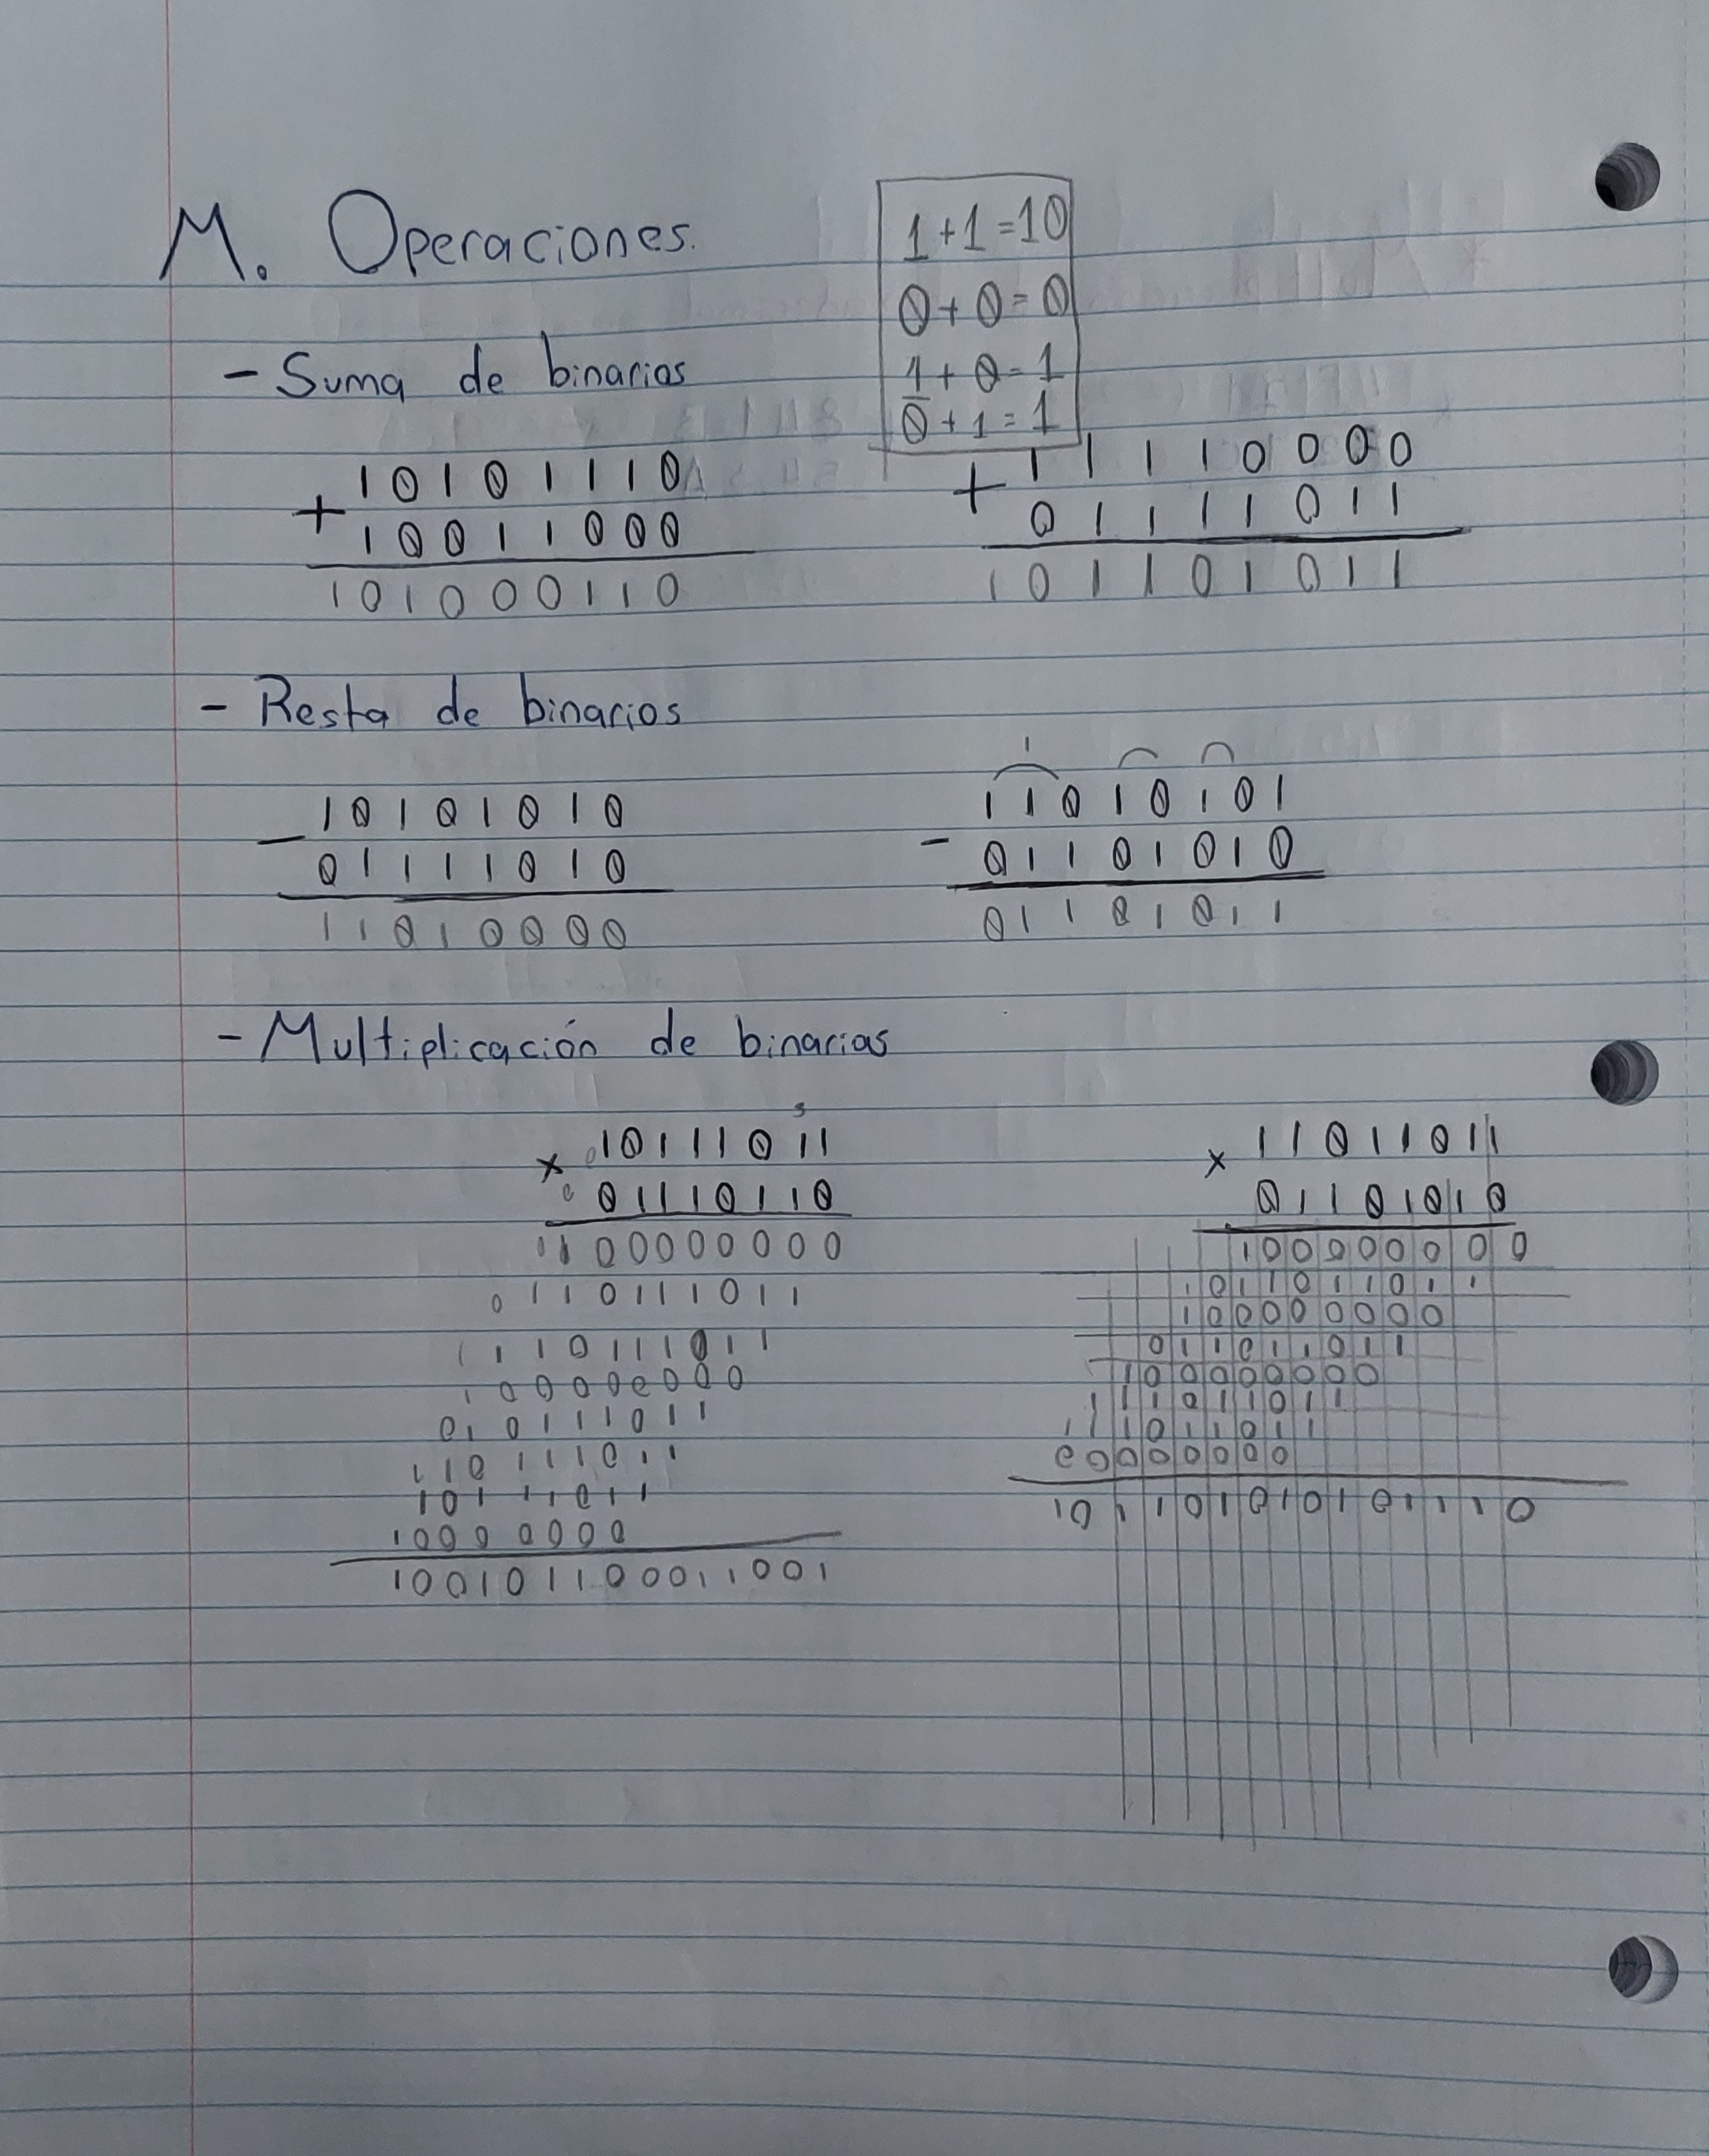 M. Operaciones.
1+1=10
0+0=0
1+0=1
0+1=1
- Suma de binarios
10101110
+ 10011000
101000110
11110000
+ 01111011
101101011
- Resta de binarios
10101010
- 01111010
11010000
1
11010101
- 01101010
01101011
- Multiplicación de binarias
10111011
x 01110110
00000000
0 11011101 1
1 1 10111011
1 00000000
0 10111011
10111011
10111011
1 00000000
100101100011001
11011011
x 01101010
1 00000000
1 0 11011011
1 00000000
0 11011011
1 00000000
1 11011011
11011011
00000000